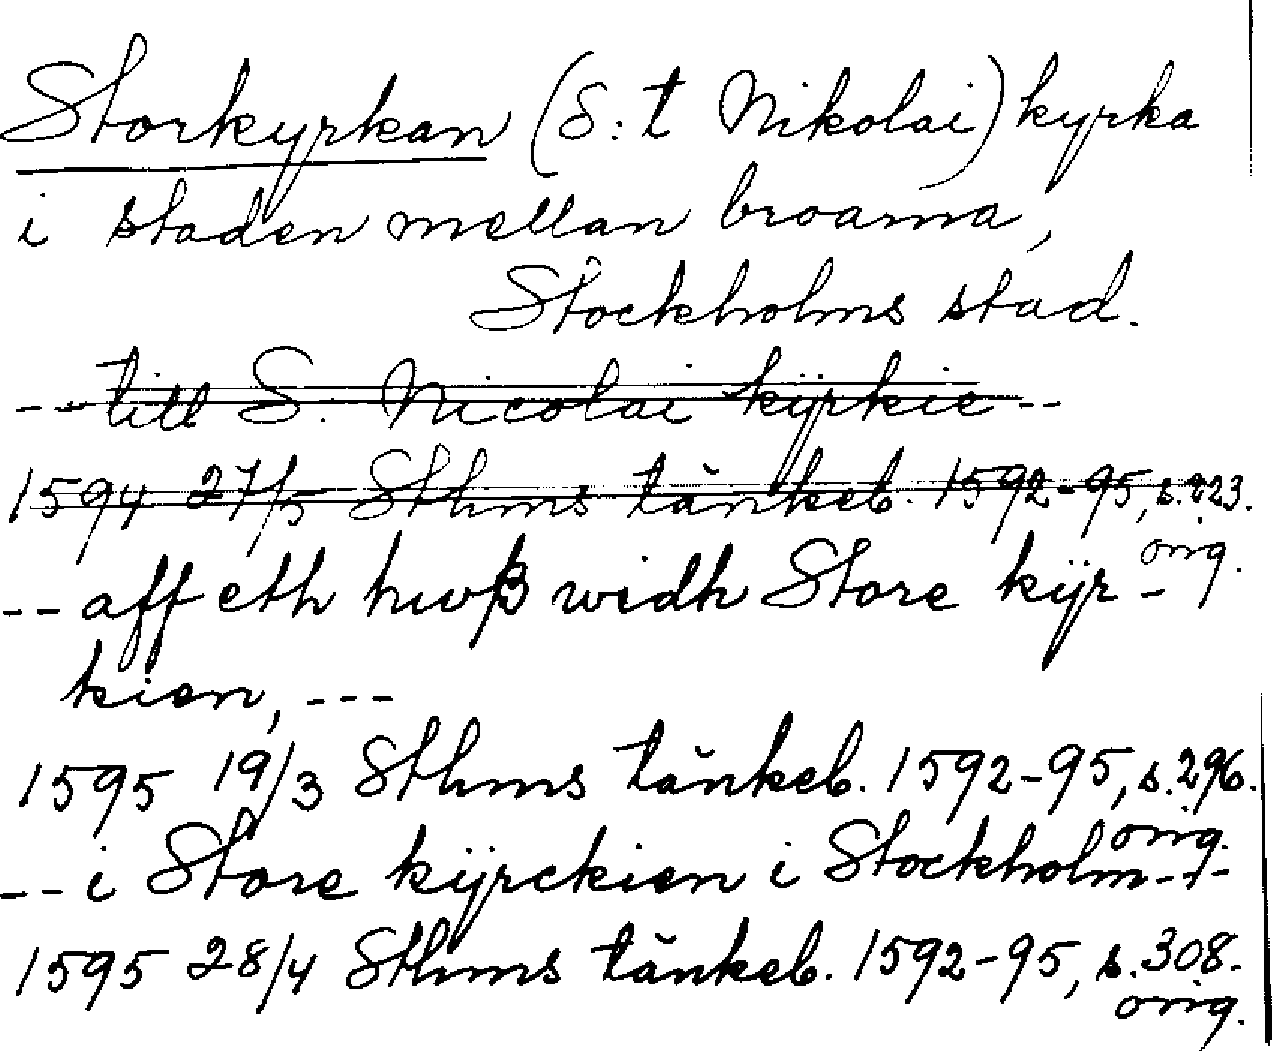 Storkyrkan (S:t Nikolai) kyrka
i staden mellan broarna,
Stockholms stad.
-- till S. Nicolai kÿrkie --
1594 27/5 Sthms tänkeb. 1592-95, s. 223.
orig.
-- aff eth hwß widh Store kÿr-
kien, ---
1595 19/3 Sthms tänkeb. 1592-95, s. 296.
orig.
-- i Store kÿrckien i Stockholm ---
1595 28/4 Sthms tänkeb. 1592-95, s. 308.
orig.